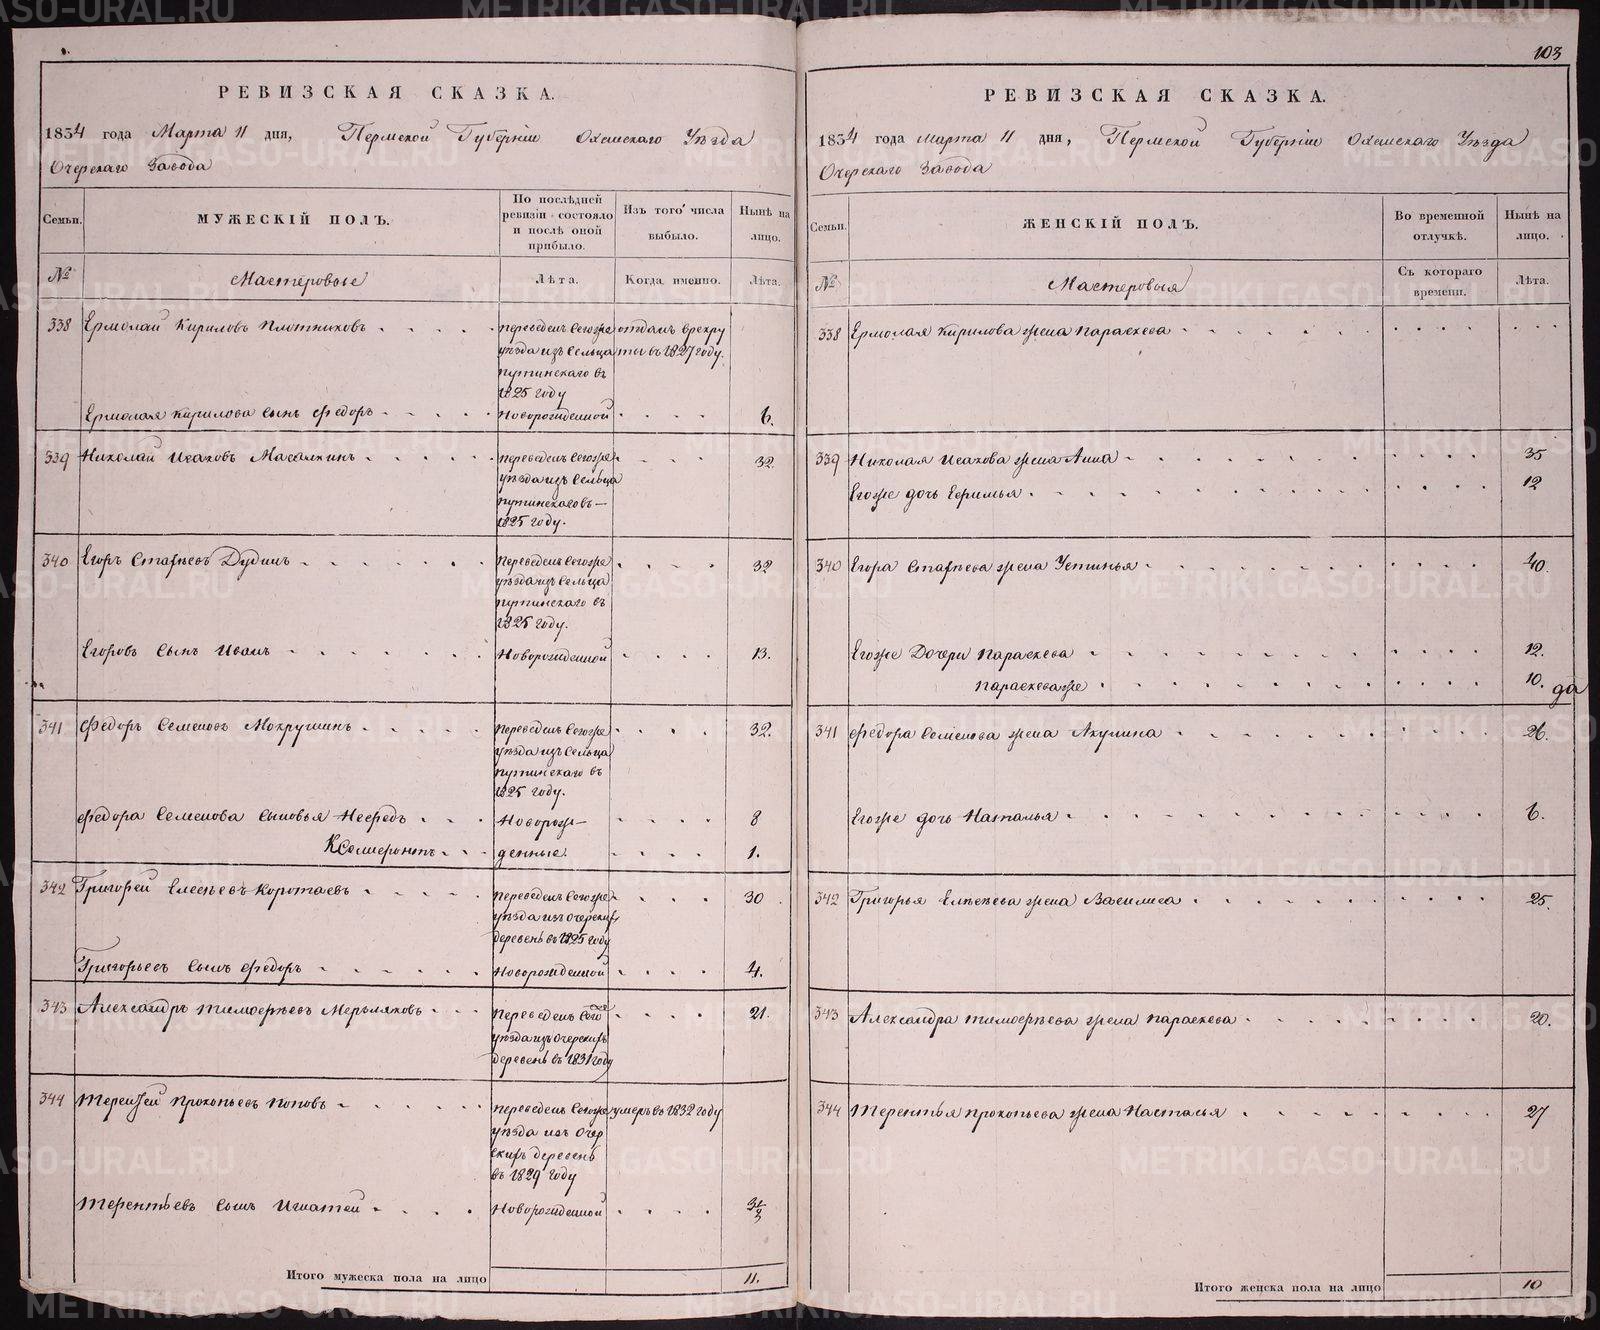 103
РЕВИЗСКАЯ СКАЗКА.
1834 года Марта 11 дня, Пермской Губерніи Оханскаго Уѣзда
Очерскаго Завода
Семьи. МУЖЕСКІЙ ПОЛЪ. По послѣдней ревизіи состояло и послѣ оной прибыло. Изъ того числа выбыло. Нынѣ на лицо.
№ Мастеровые Лѣта. Когда именно. Лѣта.
338 Ермолай Кириловъ Плотниковъ переведенъ сегоже отданъ врекру
уѣзда изъ сельца ты въ 1827 году.
путинскаго въ
1825 году
Ермолая Кирилова сынъ Федоръ Новорожденной 6.
339 Николай Исаковъ Масалкинъ переведенъ сегоже 32.
уѣзда изъ сельца
путинскаговъ
1825 году.
340 Егоръ Статѣевъ Дудинъ переведенъ сегоже 32
уѣзда изъ сельца
путинскаго въ
1825 году.
Егоровъ сынъ Иванъ Новорожденной 13.
341 Федоръ Семеновъ Мокрушинъ переведенъ сегоже 32.
уѣзда изъ сельца
путинскаго въ
1825 году.
Федора Семенова сыновья Нефедъ Новорож- 8
Ксенофонтъ денные. 1.
342 Григорей Елесѣевъ Коротаевъ переведенъ сегоже 30
уѣзда изъ очерскихъ
деревень въ 1825 году
Григорьевъ сынъ Федоръ Новорожденной 4.
343 Александръ Тимофѣевъ Мерзляковъ переведенъ сегоже 21.
уѣзда изъ очерскихъ
деревень въ 1831 году
344 Терентей Прокопьевъ Поповъ переведенъ сегоже умеръ въ 1832 году
уѣзда изъ очер
скихъ деревень
въ 1829 году
Терентьевъ сынъ Игнатей Новорожденной
Итого мужеска пола на лицо 11.
РЕВИЗСКАЯ СКАЗКА.
1834 года Марта 11 дня, Пермской Губерніи Оханскаго Уѣзда
Очерскаго Завода
Семьи. ЖЕНСКІЙ ПОЛЪ. Во временной отлучкѣ. Нынѣ на лицо.
№ Мастеровыя Съ котораго времени. Лѣта.
338 Ермолая Кирилова жена Параскева
339 Николая Исакова жена Анна 35
Егоже дочь Ефимья 12
340 Егора Статѣева жена Устинья 40.
Егоже Дочери Параскева 12.
Параскеваже 10. да
341 Федора Семенова жена Акулина 26.
Егоже дочь Наталья 6.
342 Григорья Елесѣева жена Василиса 25.
343 Александра Тимофѣева жена Параскева 20.
344 Терентья Прокопьева жена Настасья 27
Итого женска пола на лицо 10
METRIKI.GASO-URAL.RU